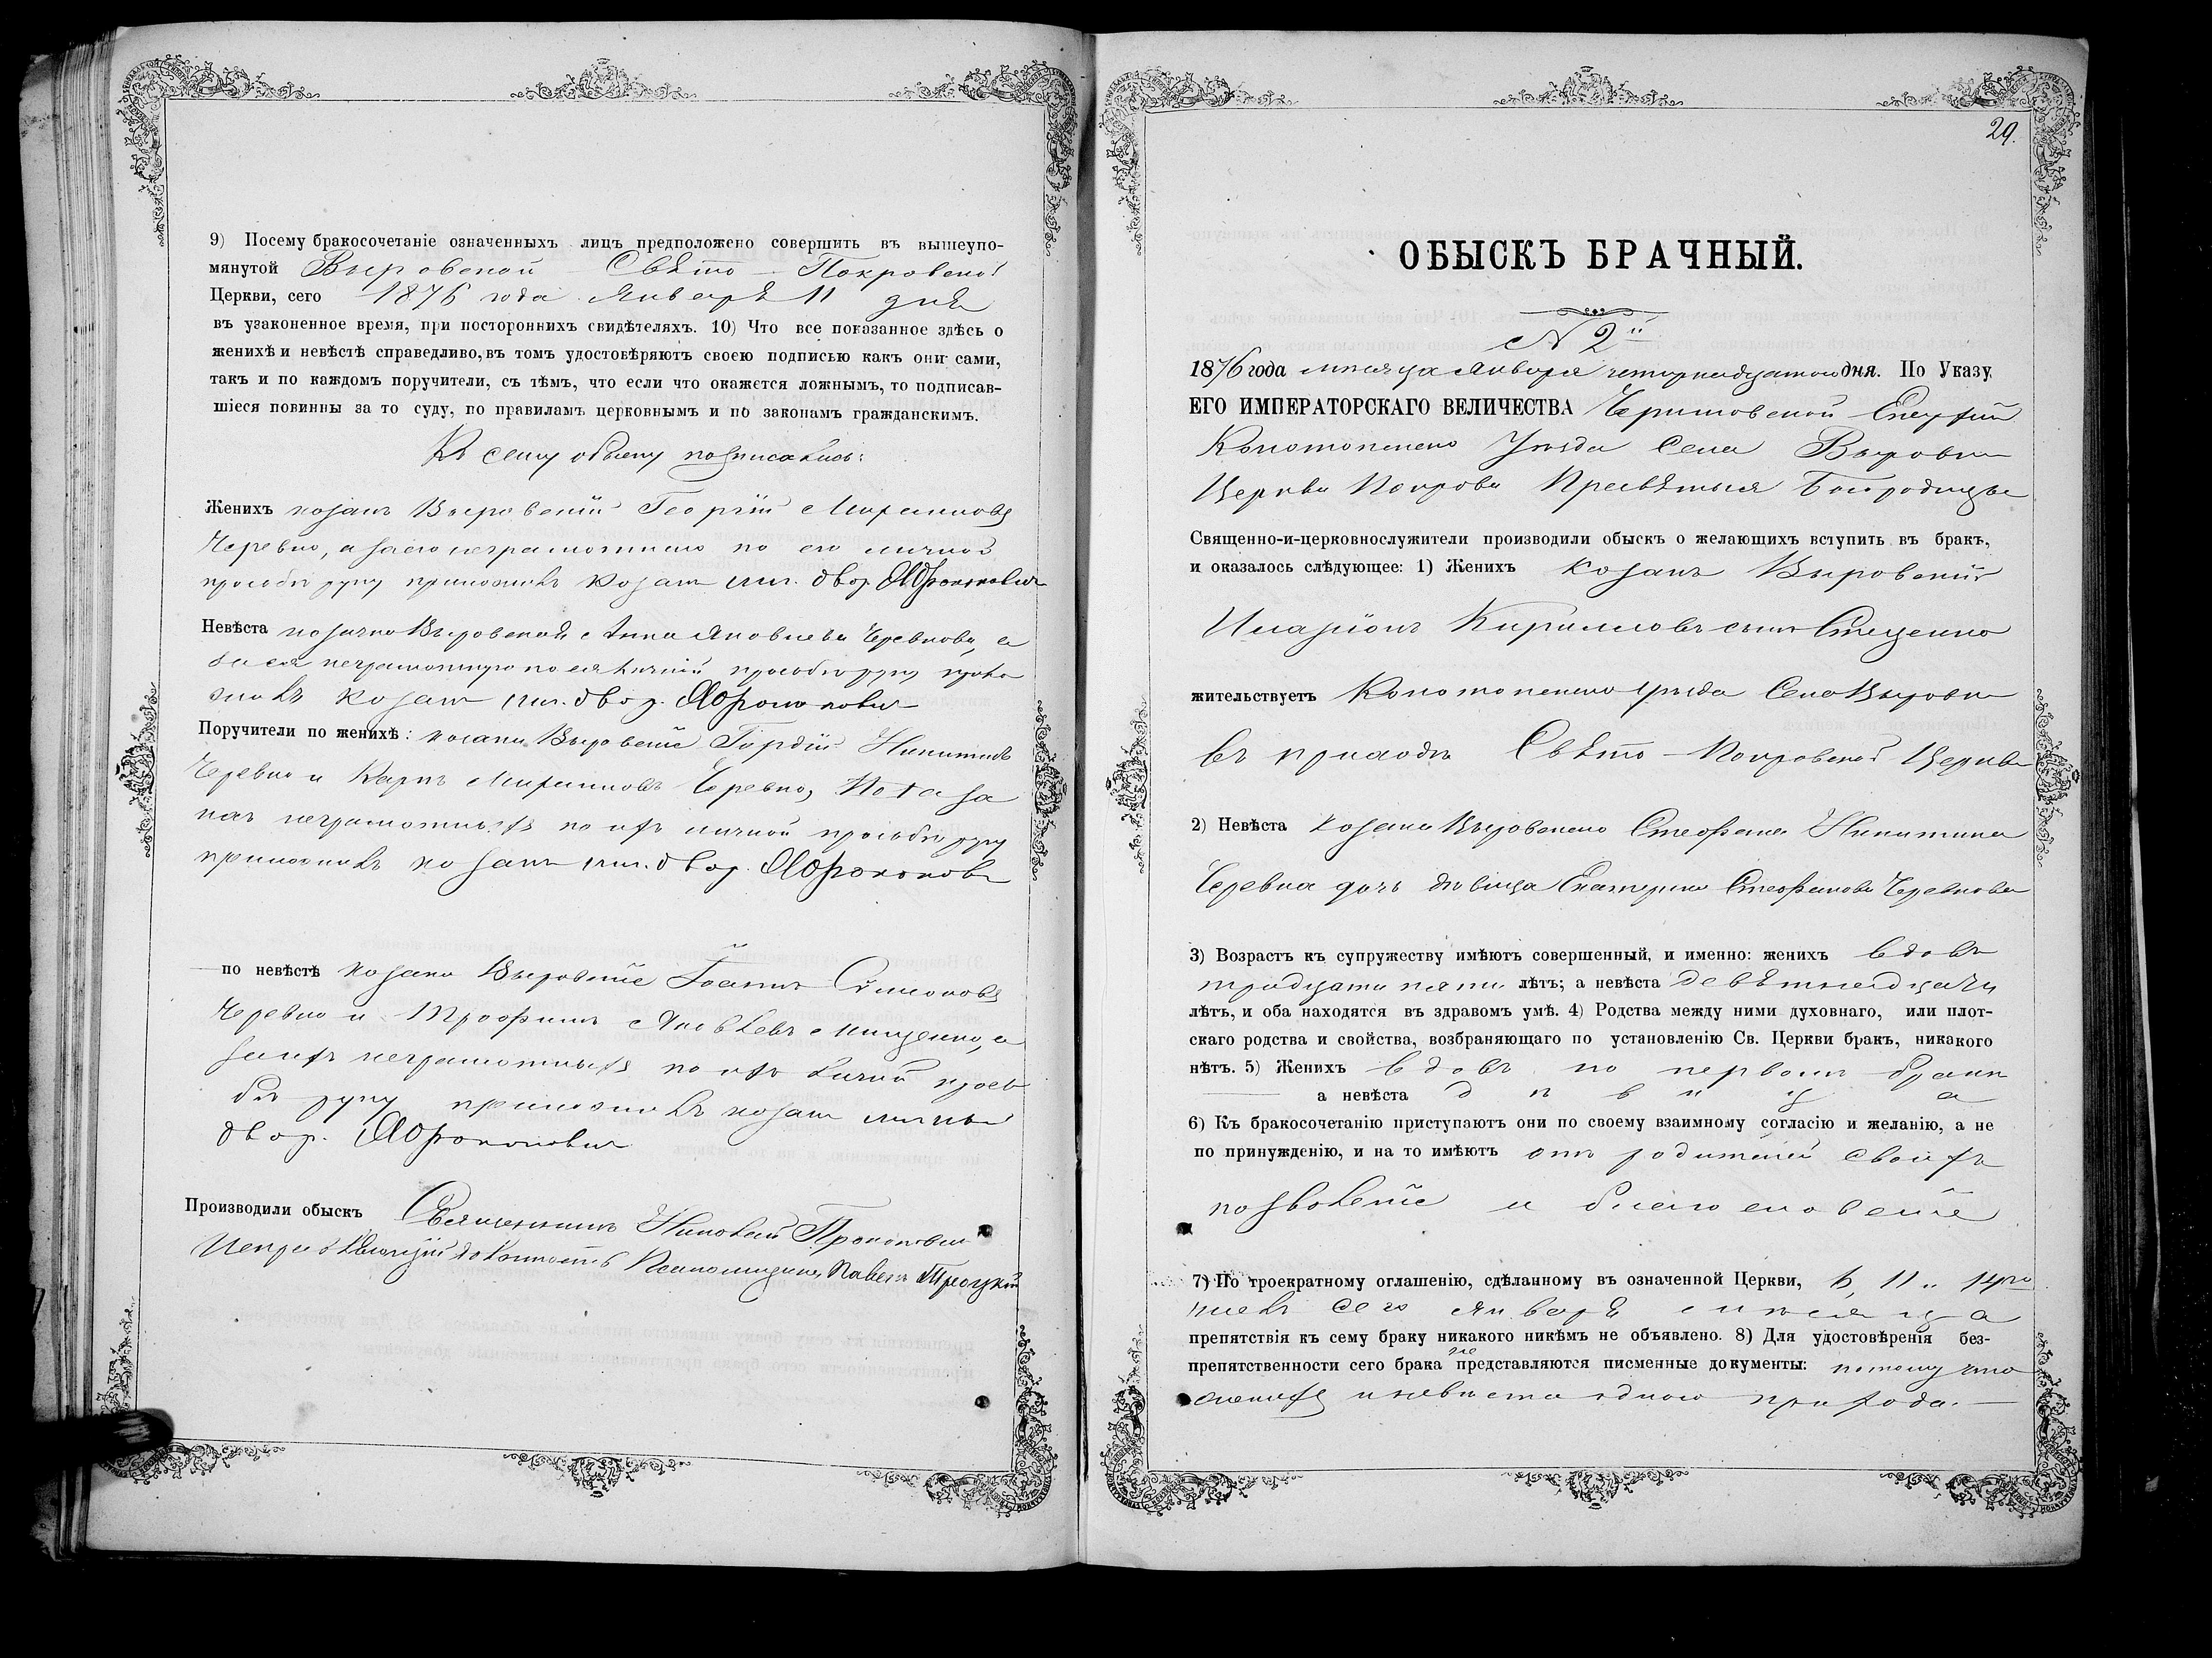 9) Посему бракосочетаніе означенныхъ лицъ предположено совершить въ вышеупо-
мянутой Выровской Свято-Покровской
Церкви, сего 1876 года Января 11 дня
въ узаконенное время, при постороннихъ свидѣтеляхъ. 10) Что все показанное здѣсь о
женихѣ и невѣстѣ справедливо, въ томъ удостовѣряютъ своею подписью какъ они сами,
такъ и по каждомъ поручители, съ тѣмъ, что если что окажется ложнымъ, то подписав-
шіеся повинны за то суду, по правиламъ церковнымъ и по законамъ гражданскимъ.
Къ сему обыску подписались:
Женихъ козакъ Выровскій Георгій
Черевко, а за его неграмотнаго по его личной
прозьбѣ руку приложилъ козакъ лич. двор.
Невѣста козачка Выровская Анна Яковлева Черевкова, а
за ея неграмотную по ея личной прозьбѣ руку прило
жилъ козакъ лич. двор.
Поручители по женихѣ: козаки Выровскіе Гордій Никитинъ
Черевко и Карпъ Черевко, а за
ихъ неграмотныхъ по ихъ личной прозьбѣ руку
приложилъ козакъ лич. двор.
по невѣстѣ козаки Выровскіе Іоаннъ Симоновъ
Черевко и Трофимъ Яковлевъ Мищенко, а
за ихъ неграмотныхъ по ихъ личной прозь
бѣ руку приложилъ козакъ личный
двор.
Производили обыскъ Священникъ Николай Прокоповичъ
должность Псаломщика Павелъ Троцкій
29.
ОБЫСКЪ БРАЧНЫЙ.
№ 2й
1876 года мѣсяца Января четырнадцатаго дня. По Указу
ЕГО ИМПЕРАТОРСКАГО ВЕЛИЧЕСТВА Черниговской Епархіи
Конотопскаго Уѣзда Села Выровки
Церкви Покрова Пресвятыя Богородицы
Священно-и-церковнослужители производили обыскъ о желающихъ вступить въ бракъ,
и оказалось слѣдующее: 1) Женихъ козакъ Выровскій
Иларіонъ Кирилловъ сынъ Стеценко
жительствуетъ Конотопскаго уѣзда Села Выровки
въ приходѣ Свято-Покровской Церкви
2) Невѣста козака Выровскаго Стефана Никитина
Черевка дочь дѣвица Екатерина Стефанова Черевкова
3) Возрастъ къ супружеству имѣютъ совершенный, и именно: женихъ вдовъ
тридцати пяти лѣтъ; а невѣста девятнадцати
лѣтъ, и оба находятся въ здравомъ умѣ. 4) Родства между ними духовнаго, или плот-
скаго родства и свойства, возбраняющаго по установленію Св. Церкви бракъ, никакого
нѣтъ. 5) Женихъ вдовъ по первомъ бракѣ
а невѣста дѣвица
6) Къ бракосочетанію приступаютъ они по своему взаимному согласію и желанію, а не
по принужденію, и на то имѣютъ отъ родителей своихъ
позволеніе и благословеніе
7) По троекратному оглашенію, сдѣланному въ означенной Церкви, 6, 11 и 14го
чиселъ сего Января мѣсяца
препятствія къ сему браку никакого никѣмъ не объявлено. 8) Для удостовѣренія без-
препятственности сего брака не представляются писменные документы: потому что
женихъ и невѣста одного прихода.